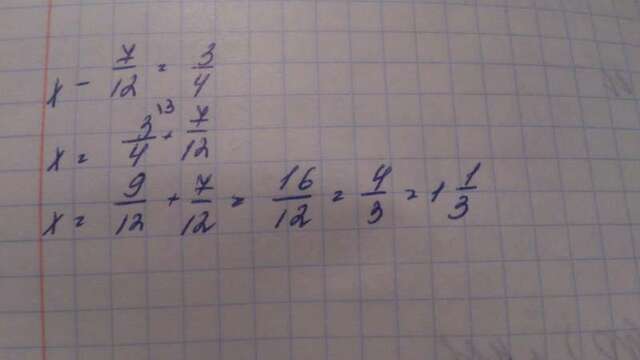 x - 7/12 = 3/4
x = 3/4 ¹³ + 7/12
x = 9/12 + 7/12 = 16/12 = 4/3 = 1 1/3